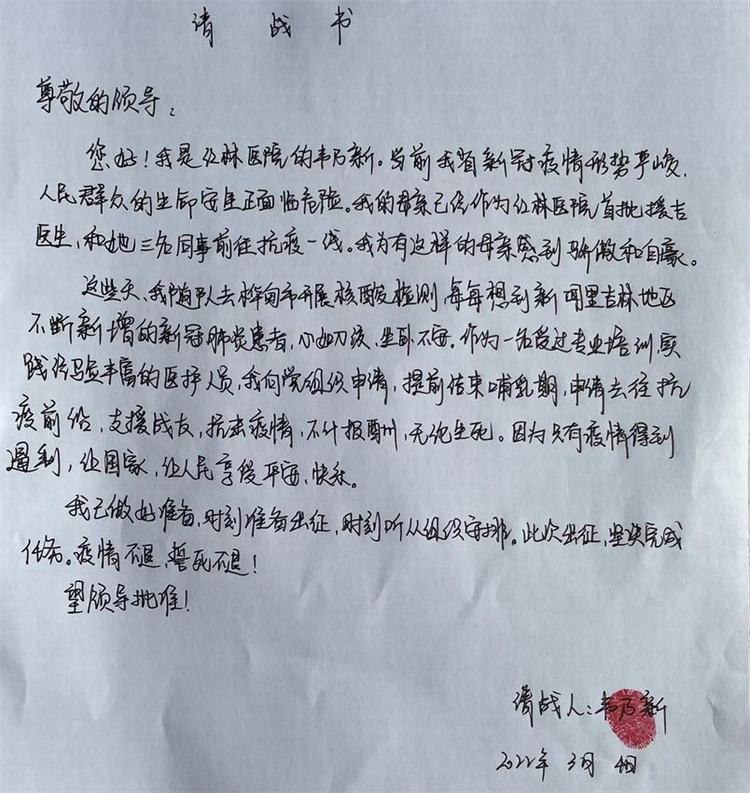 请战书
尊敬的领导：
您好！我是红林医院的韦乃新。当前我省新冠疫情形势严峻，
人民群众的生命安全正面临危险。我的母亲已经作为红林医院首批援吉
医生，和她三名同事前往抗疫一线。我为有这样的母亲感到骄傲和自豪。
这些天，我随队去桦甸市开展核酸检测，每每想到新闻里吉林地区
不断新增的新冠肺炎患者，心如刀绞，坐卧不安。作为一名受过专业培训，实
践经验丰富的医护人员，我向党组织申请，提前结束哺乳期，申请去往抗
疫前线，支援战友，抗击疫情，不计报酬，无论生死。因为只有疫情得到
遏制，让国家，让人民享受平安，快乐。
我已做好准备，时刻准备出征，时刻听从组织安排。此次出征，坚决完成
任务。疫情不退，誓死不退！
望领导批准！
请战人：韦乃新
2022年3月 日